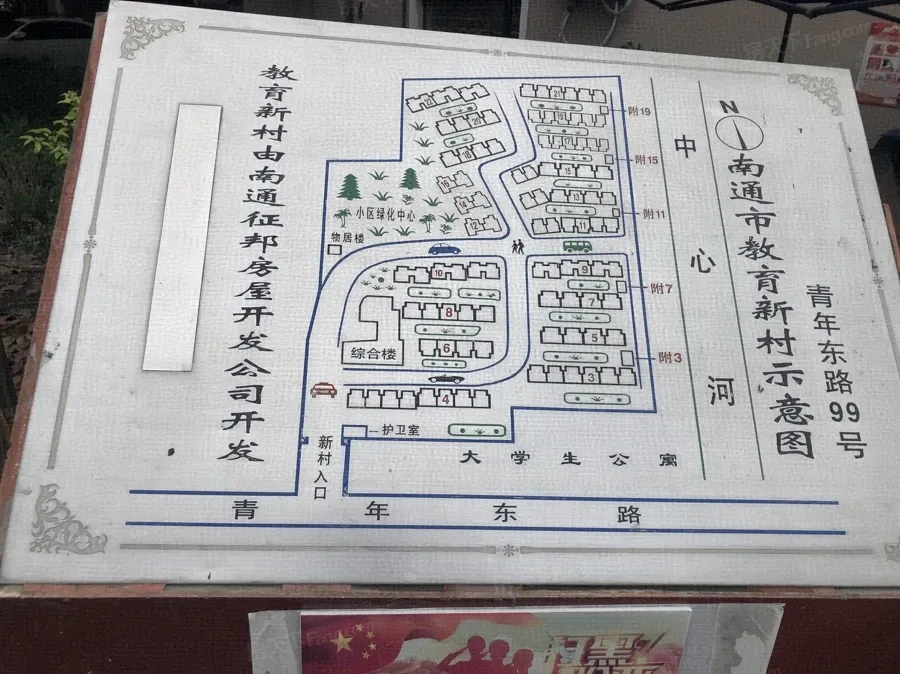 教育新村由南通征邦房屋开发公司开发
南通市教育新村示意图
青年东路99号
N
中心河
22
20
18
16
14
12
21
19
17
15
13
11
附19
附15
附11
附7
附3
小区绿化中心
物居楼
10
8
6
4
9
7
5
3
综合楼
护卫室
新村入口
大学生公寓
青年东路
Fang.com